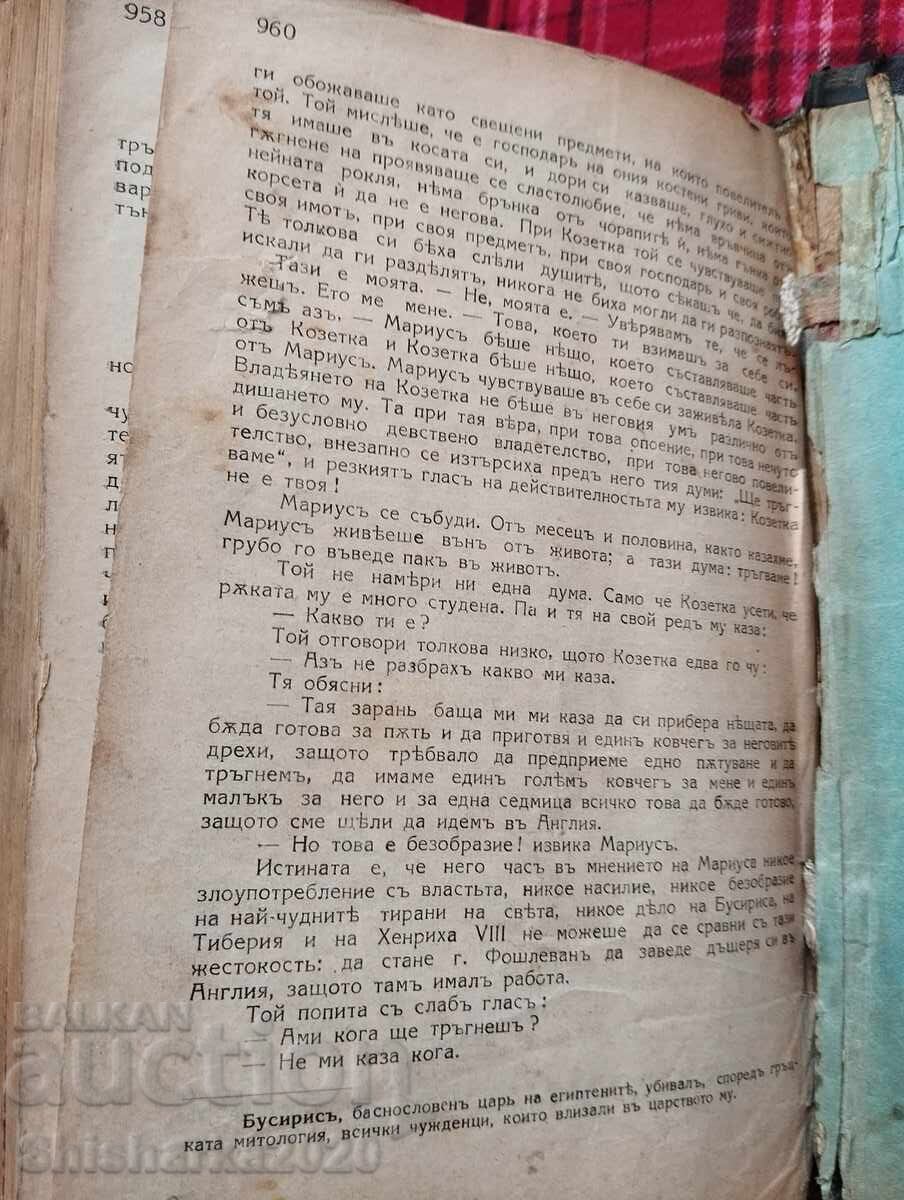 958
960
тръ
под
вар
тън
но
чу
те
ят
д
л
н
п
ч
и
б
ги обожаваше като свещени предмети, на които повелитель е
той. Той мислѣше, че е господарь на ония костени гриви, които
тя имаше въ косата си, и дори си казваше, глухо и
гѫгнене на проявяваще се сластолюбие, че нѣма връвчица отъ
нейната рокля, нѣма брънка отъ чорапитѣ ѝ, нѣма гънка отъ
корсета ѝ да не е негова. При Козетка той се чувствуваше при
своя имотъ, при своя предметъ, при своя господарь и своя
Тѣ толкова си бѣха слѣли душитѣ, щото сѣкашъ че, да биха
искали да ги раздѣлятъ, никога не биха могли да ги разпознаятъ.
Тази е моята. — Не, моята е. — Увѣрявамъ те, че се лъ-
жешъ. Ето ме мене. — Това, което ти взимашъ за себе си,
съмъ азъ, — Мариусъ бѣше нѣщо, което съставляваше часть
отъ Козетка и Козетка бѣше нѣщо, което съставляваше часть
отъ Мариусъ. Мариусъ чувствуваше въ себе си заживѣла Козетка.
Владѣянето на Козетка не бѣше въ неговия умъ различно отъ
дишането му. Та при тая вѣра, при това опоение, при това нечуто
и безусловно девствено владетелство, при това негово повели-
телство, внезапно се изтърсиха предъ него тия думи: „Ще тръг-
ваме“, и резкиятъ гласъ на действителностьта му извика: Козетка
не е твоя!
Мариусъ се събуди. Отъ месецъ и половина, както казахме,
Мариусъ живѣеше вънъ отъ живота; а тази дума: тръгваме!
грубо го въведе пакъ въ животъ.
Той не намѣри ни една дума. Само че Козетка усети, че
рѫката му е много студена. Па и тя на свой редъ му каза:
— Какво ти е?
Той отговори толкова низко, щото Козетка едва го чу:
— Азъ не разбрахъ какво ми каза.
Тя обясни:
— Тая зарань баща ми ми каза да си прибера нѣщата, да
бѫда готова за пѫть и да приготвя и единъ ковчегъ за неговитѣ
дрехи, защото трѣбвало да предприеме едно пѫтуване и да
тръгнемъ, да имаме единъ голѣмъ ковчегъ за мене и единъ
малъкъ за него и за една седмица всичко това да бѫде готово,
защото сме щѣли да идемъ въ Англия.
— Но това е безобразие! извика Мариусъ.
Истината е, че него часъ въ мнението на Мариуса никое
злоупотребление съ властьта, никое насилие, никое безобразие
на най-чуднитѣ тирани на свѣта, никое дѣло на Бусириса, на
Тиберия и на Хенриха VIII не можеше да се сравни съ тази
жестокость: да стане г. Фошлеванъ да заведе дъщеря си въ
Англия, защото тамъ ималъ работа.
Той попита съ слабъ гласъ:
— Ами кога ще тръгнешъ?
— Не ми каза кога.
Бусирисъ, баснословенъ царь на египтенитѣ, убивалъ, споредъ гръц-
ката митология, всички чужденци, които влизали въ царството му.
BALKAN
auction
Shisharka2020